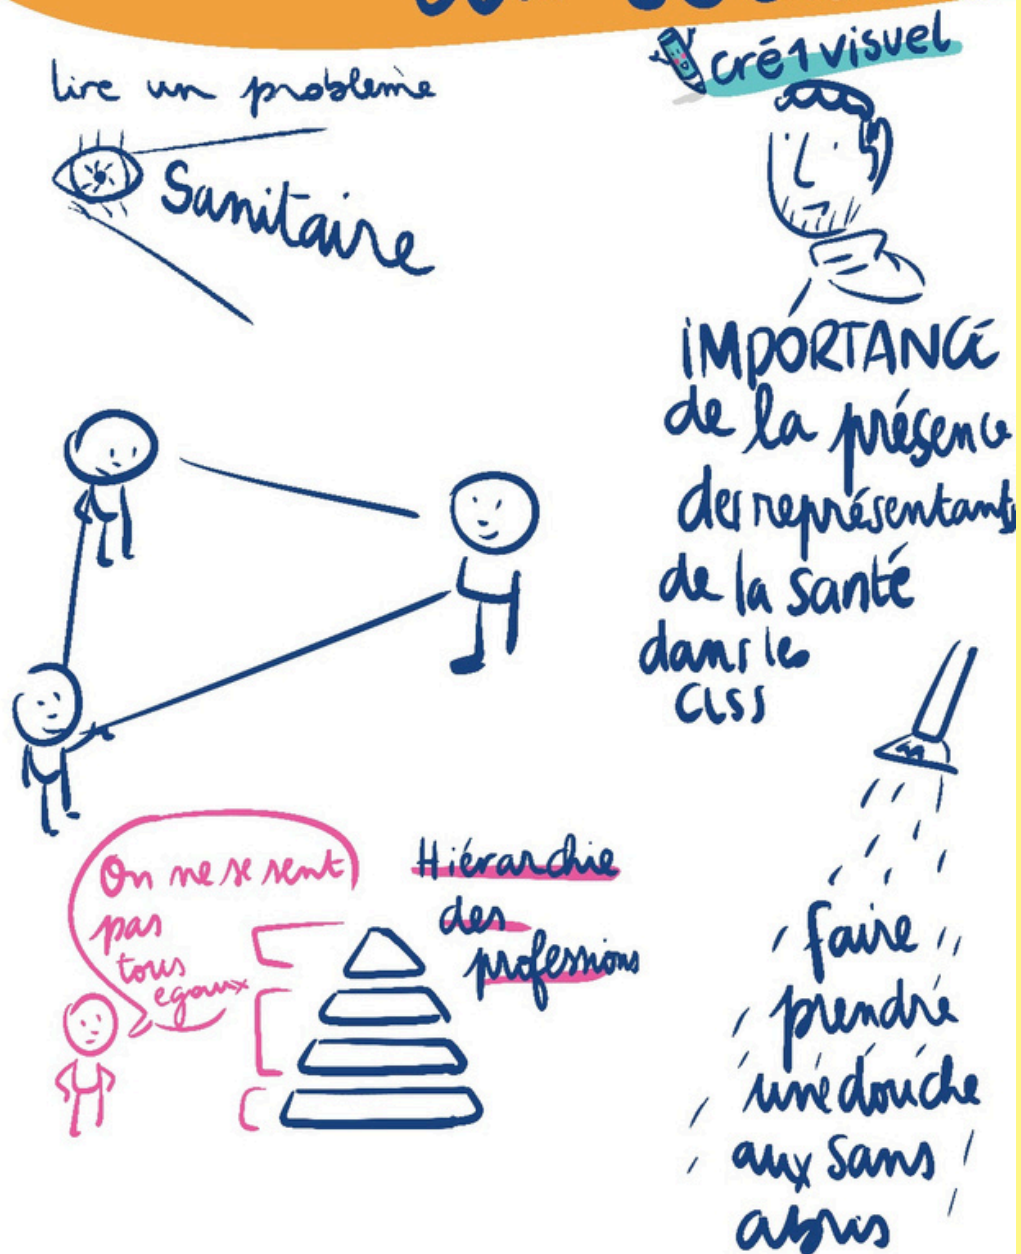 cré1visuel
lire un problème
Sanitaire
IMPORTANCE
de la présence
des représentants
de la santé
dans les
CLSS
On ne se sent
pas
tous
egaux
Hiérarchie
des
professions
faire
prendre
une douche
aux sans
abris